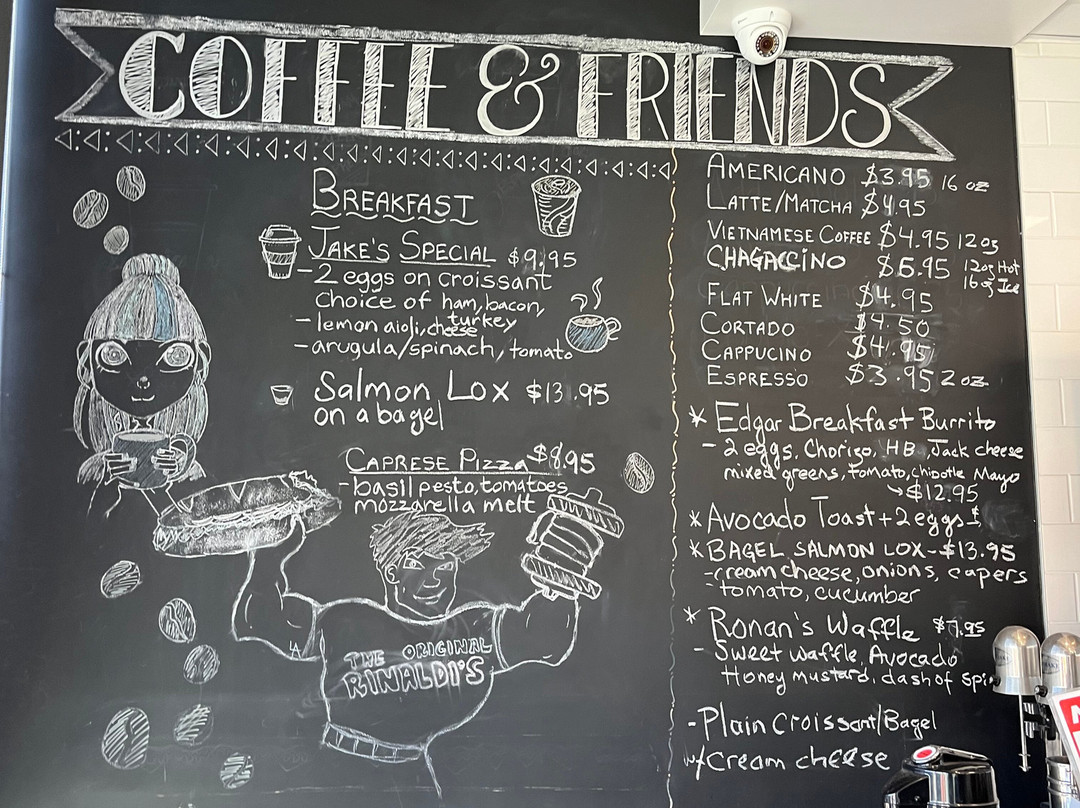 COFFEE & FRIENDS
BREAKFAST
JAKE'S SPECIAL $9.95
- 2 eggs on croissant
choice of ham, bacon,
turkey
- lemon aioli, cheese
- arugula/spinach, tomato
Salmon Lox $13.95
on a bagel
CAPRESE PIZZA $8.95
- basil pesto, tomatoes
mozzarella melt
THE ORIGINAL
RINALDI'S
LA
AMERICANO $3.95 16 oz
LATTE/MATCHA $4.95
VIETNAMESE COFFEE $4.95 12oz
CHAGACCINO $6.95 12oz Hot
16oz Ice
FLAT WHITE $4.95
CORTADO $4.50
CAPPUCINO $4.95
ESPRESSO $3.95 2 oz
* Edgar Breakfast Burrito
- 2 eggs, Choriso, HB, Jack cheese
mixed greens, tomato, chipotle Mayo
→$12.95
* AVOCADO TOAST + 2 eggs $
* BAGEL SALMON LOX - $13.95
- cream cheese, onions, capers
tomato, cucumber
* Ronan's Waffle $7.95
- Sweet waffle, Avocado
Honey mustard, dash of
- Plain Croissant/Bagel
w/Cream cheese